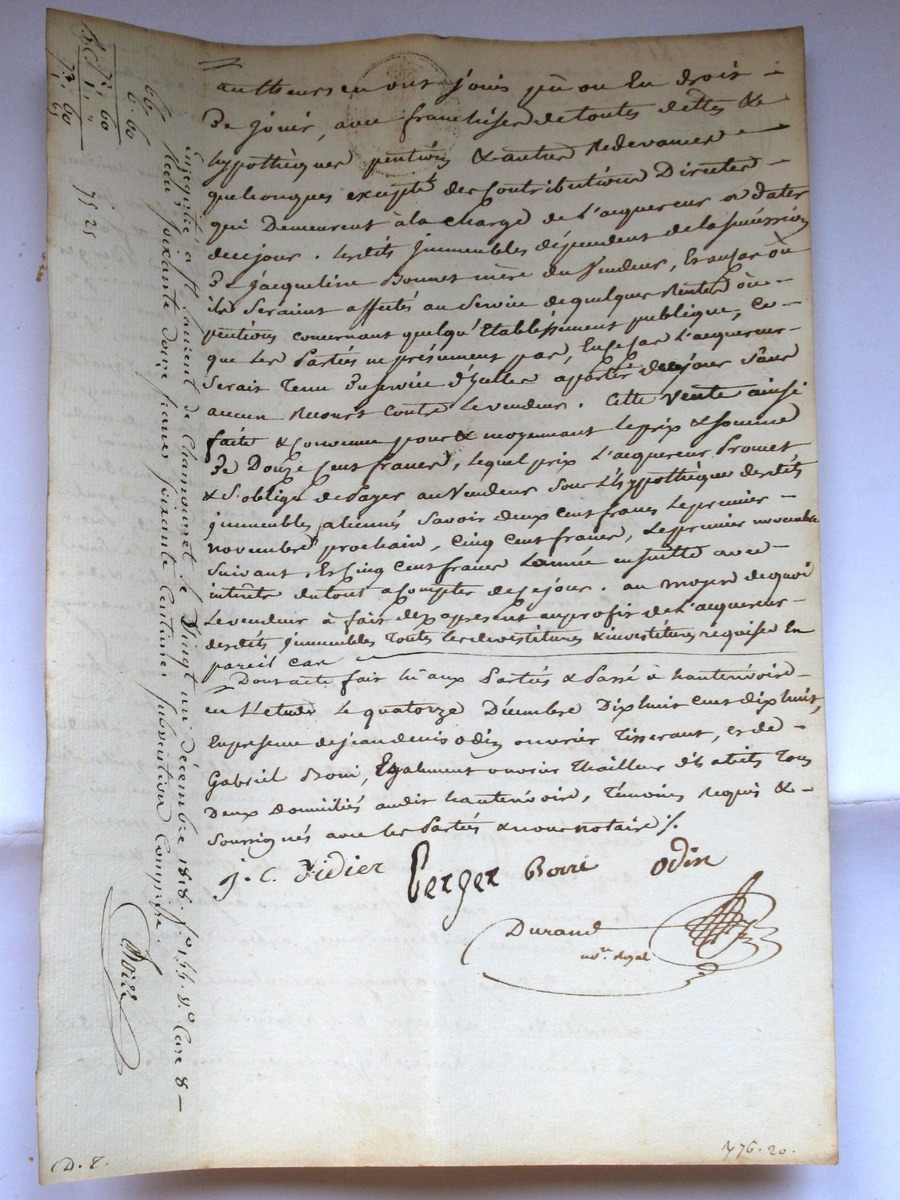 autheurs en ont jouis pû ou eu droit
de jouir, avec franchise de toutes dettes &
hypothèques pentions & autres Redevances
quelconques excepté des Contributions Directes
qui Demeurent à la charge de l'acquereur a dater
de ce jour. Lesdits Immeubles dépendent de la succession
de Jacqueline Bonnet mère du Vendeur, Et au cas où
ils Seraint affectés au Service de quelques Rentes où
pentions concernant quelqu'Etablissement publique, ce
que les Parties ne présument pas, En ce cas l'acquereur
serait Tenu du service d'Icelles a porter de ce jour sans
aucun Recours contre le vendeur. Cette Vente ainsi
faite & convenue pour & moyennant le prix & somme
de Douze Cent francs, lequel prix l'acquereur Promet
& S'oblige de Payer au Vendeur Sous l'hypothèque desdits
immeubles alienés Savoir deux cent francs le premier
novembre prochain, Cinq Cent francs, le premier novembre
Suivant, Et Cinq Cent francs l'année ensuitte avec
interets du tout a Compter de ce jour. au moyen de quoi
le vendeur à fait dez apresent au profit de l'acquereur
desdits Immeubles Toutes les devestitures & investitures requises En
pareil cas
Dont acte fait lû aux Parties & Passé à hauterivoire
en l'etude Le quatorze Décembre Dix huit cent dix huit,
En présence de jean denis odin ouvrier Tisserant, et de
Gabriel Borri, Egalement ouvrier Thailleur d'habits Tous
Deux domiciliés audit hauterivoire, Témoins Requis &
Soussignés avec les Parties & nous notaire ./.
J. C. Fidier Berger Borri Odin
Durand
not.re Royal
Enregistré à St Laurent de Chamousset le Vingt un décembre 1818. f.o 155. v.o Case 8
Reçu soixante douze francs soixante Centimes subvention Comprise.
66.
6. 60
72. 60
1.
73. 60
1. 65
75 25
D. T.
776.20.